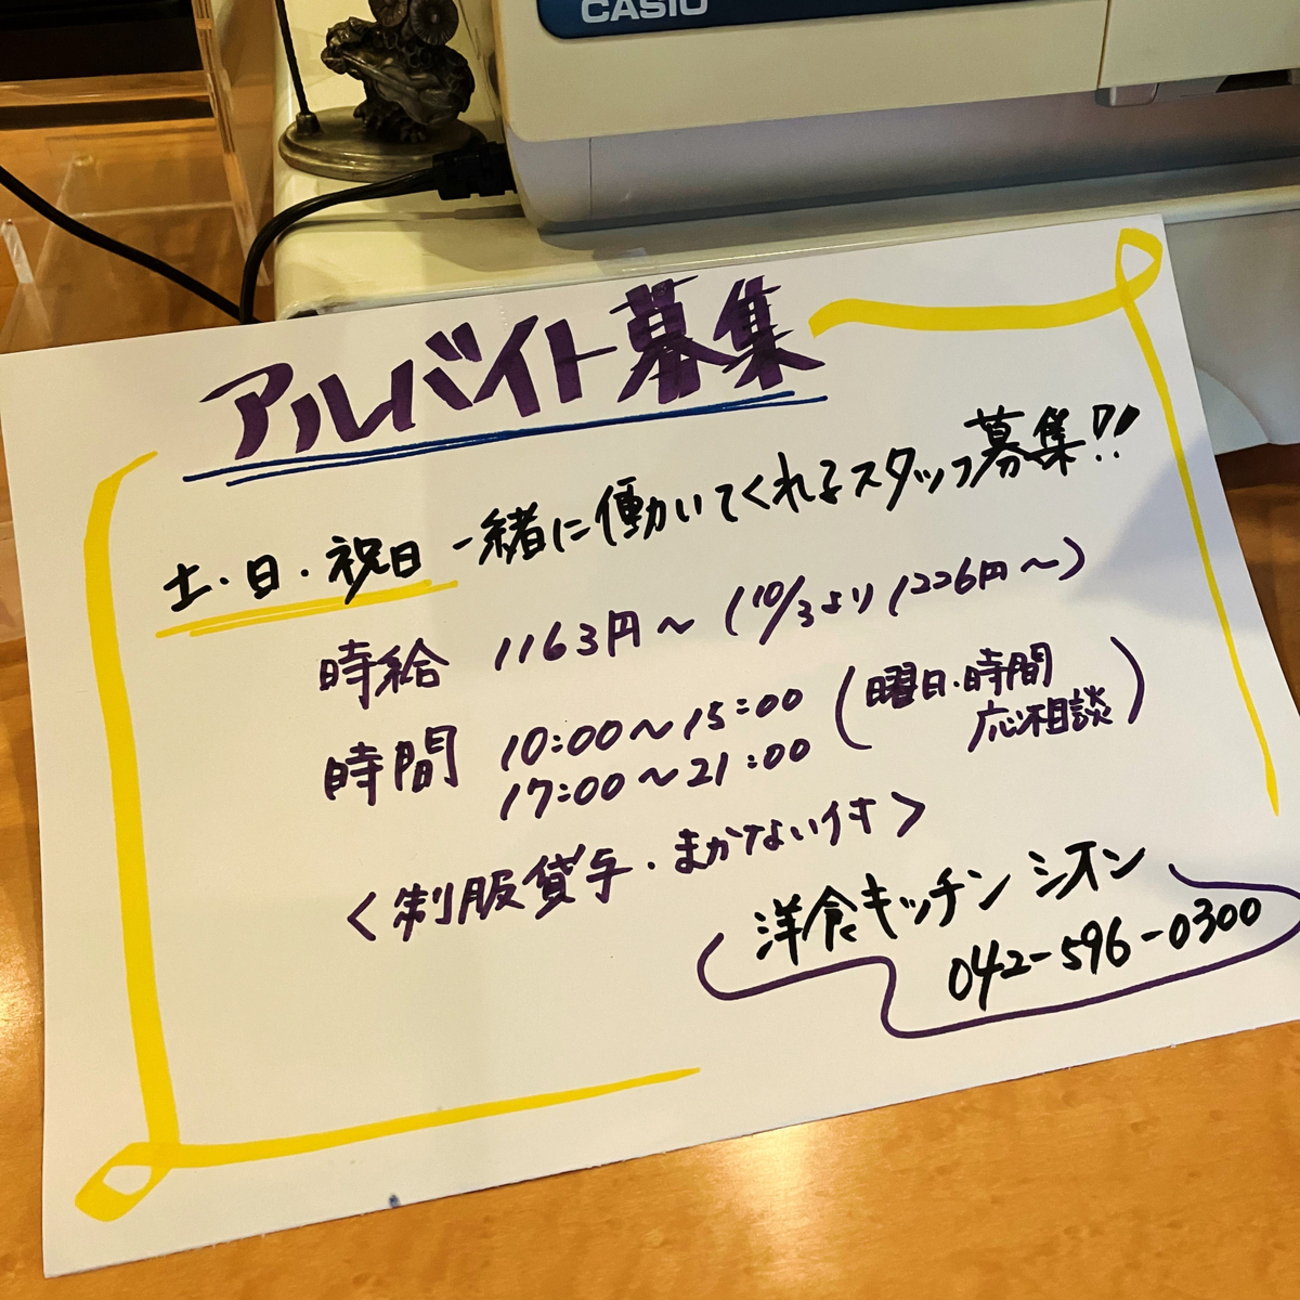 CASIO
アルバイト募集
土・日・祝日 一緒に働いてくれるスタッフ募集!!
時給 1163円〜 (10/3より1226円〜)
時間 10:00〜15:00 (曜日・時間
17:00〜21:00 応相談)
<制服貸与・まかない付>
洋食キッチン シオン
042-596-0300